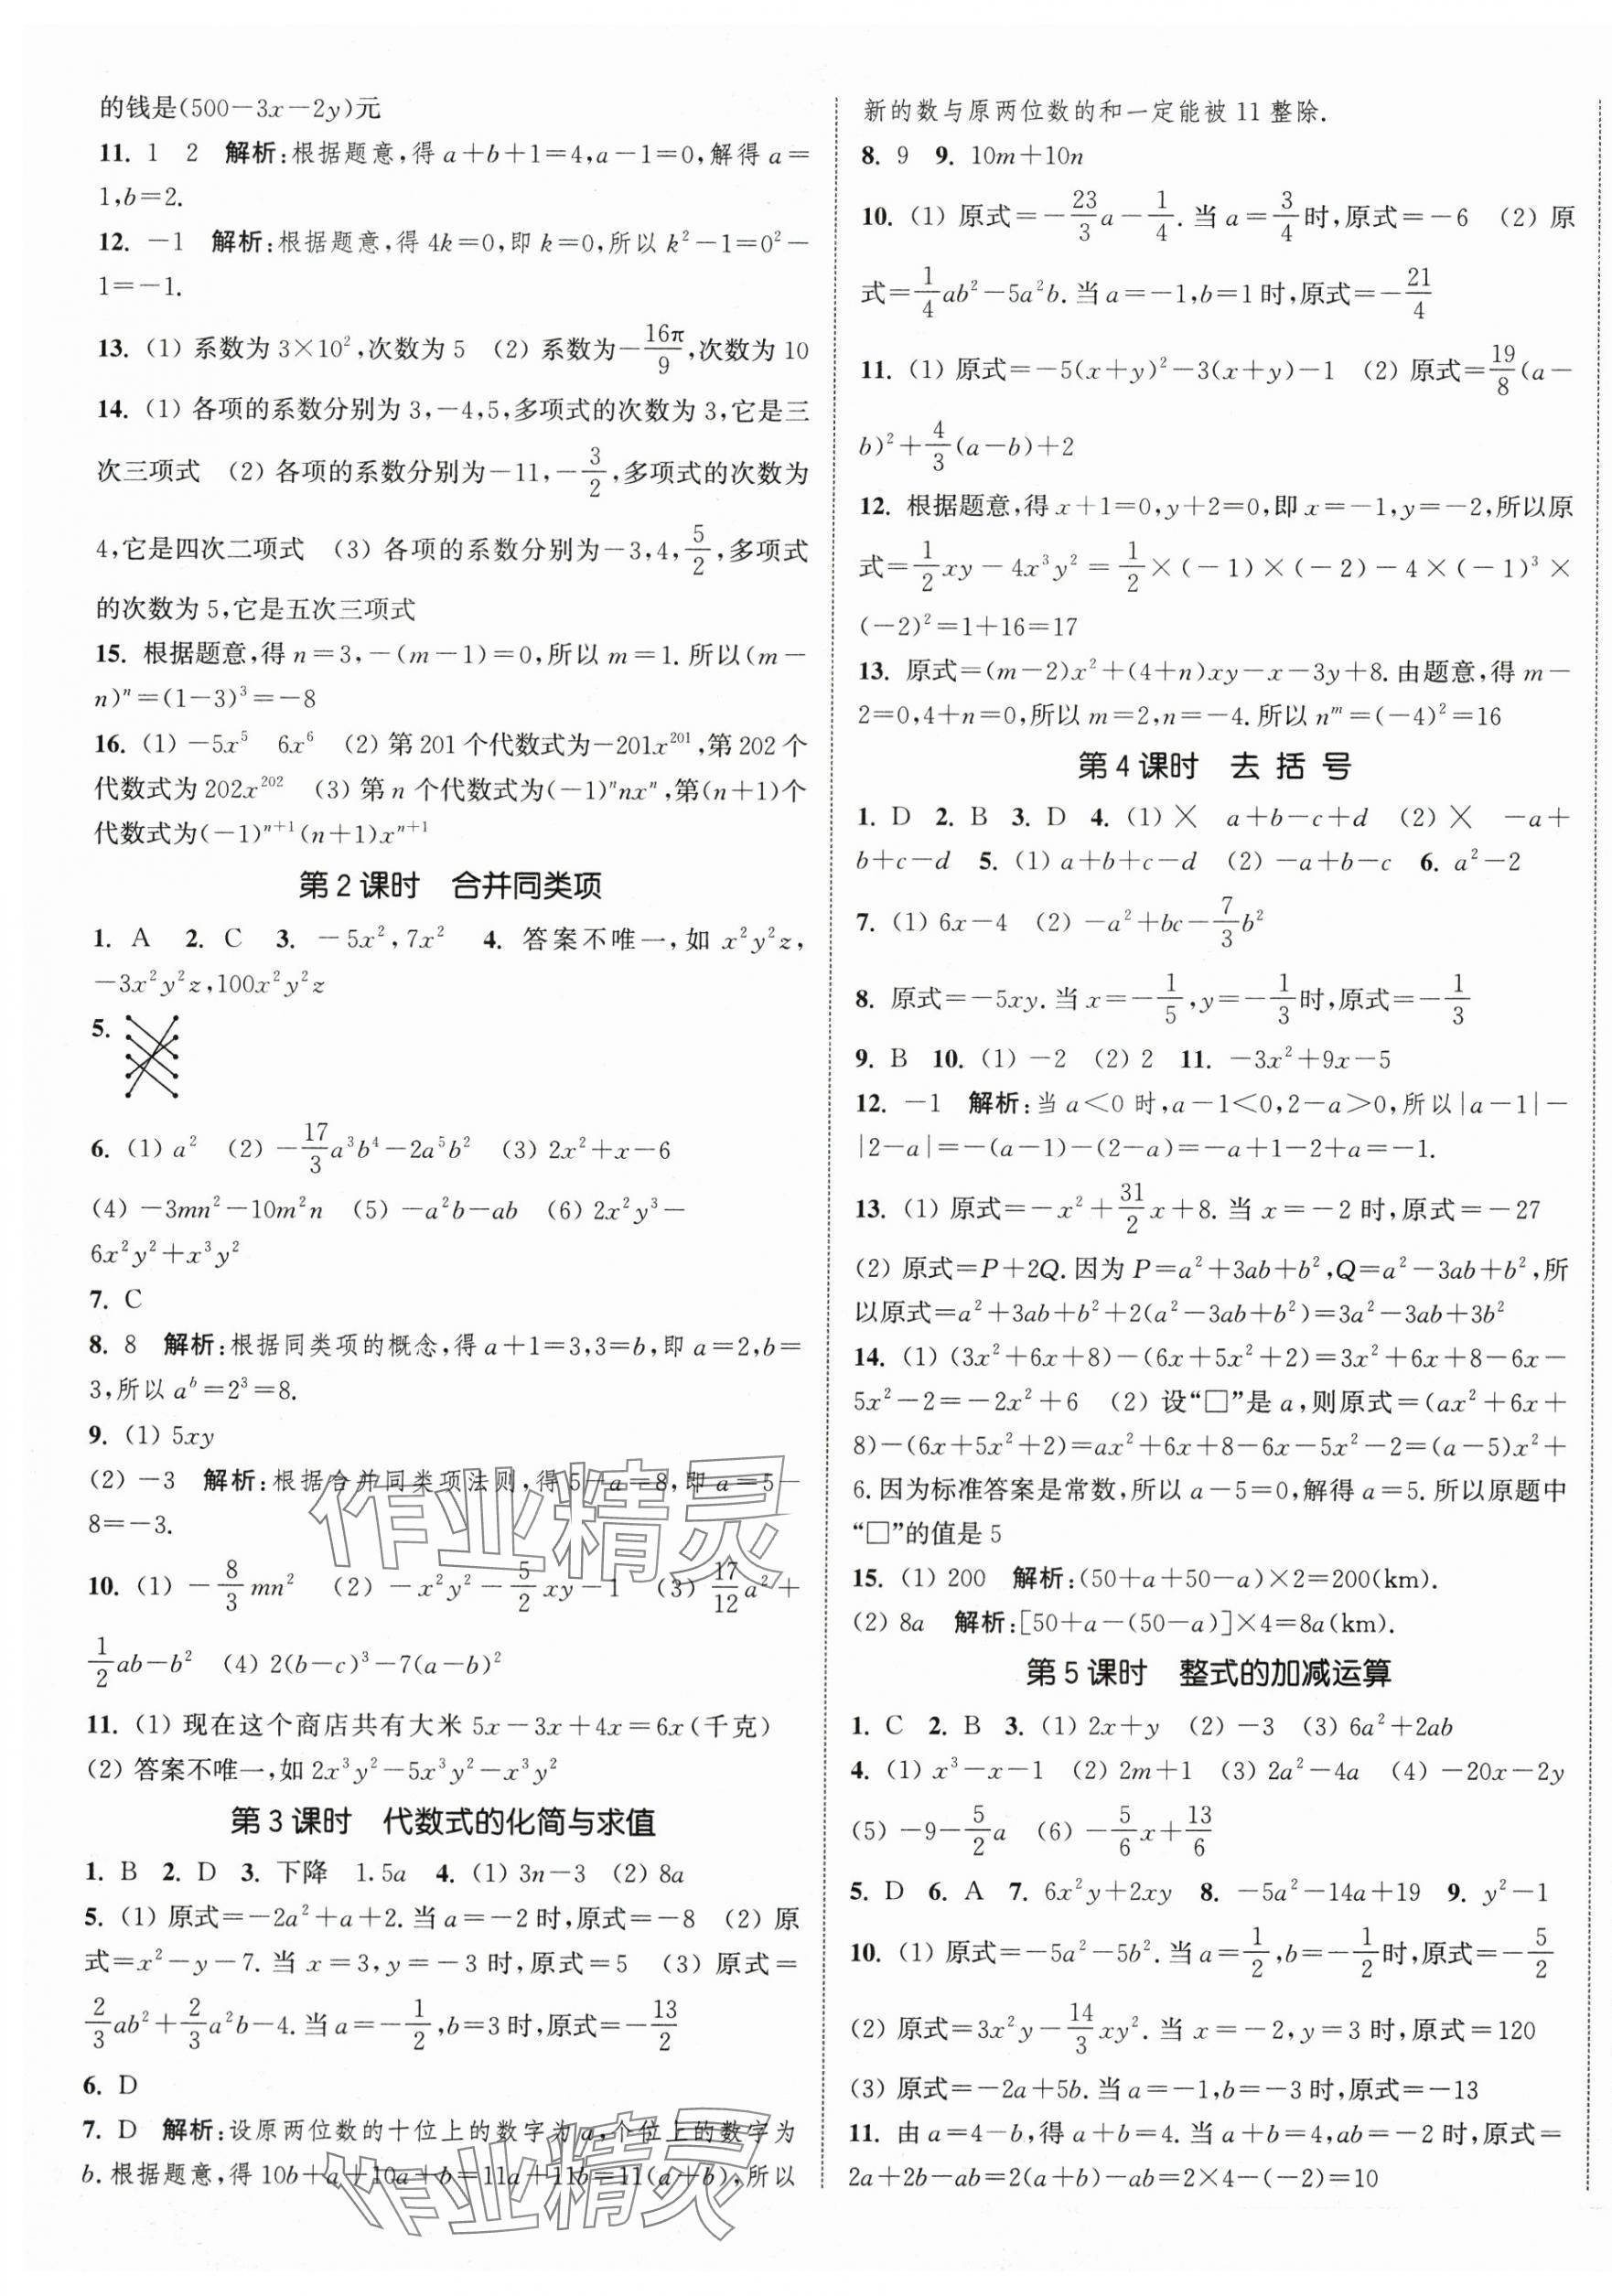 的钱是(500－3x－2y)元
11. 1　2　解析:根据题意,得 a＋b＋1＝4,a－1＝0,解得 a＝
1,b＝2.
12. －1　解析:根据题意,得 4k＝0,即 k＝0,所以 k²－1＝0²－
1＝－1.
13. (1) 系数为 3×10²,次数为 5　(2) 系数为－16π/9,次数为 10
14. (1) 各项的系数分别为 3,－4,5,多项式的次数为 3,它是三
次三项式　(2) 各项的系数分别为－11,－3/2,多项式的次数为
4,它是四次二项式　(3) 各项的系数分别为－3,4,5/2,多项式
的次数为 5,它是五次三项式
15. 根据题意,得 n＝3,－(m－1)＝0,所以 m＝1.所以(m－
n)ⁿ＝(1－3)³＝－8
16. (1) －5x⁵　6x⁶　(2) 第 201 个代数式为－201x²⁰¹,第 202 个
代数式为 202x²⁰²　(3) 第 n 个代数式为(－1)ⁿnxⁿ,第(n＋1)个
代数式为(－1)ⁿ⁺¹(n＋1)xⁿ⁺¹
第 2 课时　合并同类项
1. A　2. C　3. －5x²,7x²　4. 答案不唯一,如 x²y²z,
－3x²y²z,100x²y²z
5.
6. (1) a²　(2) －17/3a³b⁴－2a⁵b²　(3) 2x²＋x－6
(4) －3mn²－10m²n　(5) －a²b－ab　(6) 2x²y³－
6x²y²＋x³y²
7. C
8. 8　解析:根据同类项的概念,得 a＋1＝3,3＝b,即 a＝2,b＝
3,所以 aᵇ＝2³＝8.
9. (1) 5xy
(2) －3　解析:根据合并同类项法则,得 5－a＝8,即 a＝5－
8＝－3.
10. (1) －8/3mn²　(2) －x²y²－5/2xy－1　(3) 17/12a²＋
1/2ab－b²　(4) 2(b－c)³－7(a－b)²
11. (1) 现在这个商店共有大米 5x－3x＋4x＝6x(千克)
(2) 答案不唯一,如 2x³y²－5x³y²－x³y²
第 3 课时　代数式的化简与求值
1. B　2. D　3. 下降　1.5a　4. (1) 3n－3　(2) 8a
5. (1) 原式＝－2a²＋a＋2.当 a＝－2 时,原式＝－8　(2) 原
式＝x²－y－7.当 x＝3,y＝－3 时,原式＝5　(3) 原式＝
2/3ab²＋2/3a²b－4.当 a＝－1/2,b＝3 时,原式＝－13/2
6. D
7. D　解析:设原两位数的十位上的数字为 a,个位上的数字为
b.根据题意,得 10b＋a＋10a＋b＝11a＋11b＝11(a＋b),所以
新的数与原两位数的和一定能被 11 整除.
8. 9　9. 10m＋10n
10. (1) 原式＝－23/3a－1/4.当 a＝3/4时,原式＝－6　(2) 原
式＝1/4ab²－5a²b.当 a＝－1,b＝1 时,原式＝－21/4
11. (1) 原式＝－5(x＋y)²－3(x＋y)－1　(2) 原式＝19/8(a－
b)²＋4/3(a－b)＋2
12. 根据题意,得 x＋1＝0,y＋2＝0,即 x＝－1,y＝－2,所以原
式＝1/2xy－4x³y²＝1/2×(－1)×(－2)－4×(－1)³×
(－2)²＝1＋16＝17
13. 原式＝(m－2)x²＋(4＋n)xy－x－3y＋8.由题意,得 m－
2＝0,4＋n＝0,所以 m＝2,n＝－4.所以 nᵐ＝(－4)²＝16
第 4 课时　去 括 号
1. D　2. B　3. D　4. (1) ×　a＋b－c＋d　(2) ×　－a＋
b＋c－d　5. (1) a＋b＋c－d　(2) －a＋b－c　6. a²－2
7. (1) 6x－4　(2) －a²＋bc－7/3b²
8. 原式＝－5xy.当 x＝－1/5,y＝－1/3时,原式＝－1/3
9. B　10. (1) －2　(2) 2　11. －3x²＋9x－5
12. －1　解析:当 a＜0 时,a－1＜0,2－a＞0,所以|a－1|－
|2－a|＝－(a－1)－(2－a)＝－a＋1－2＋a＝－1.
13. (1) 原式＝－x²＋31/2x＋8.当 x＝－2 时,原式＝－27
(2) 原式＝P＋2Q.因为 P＝a²＋3ab＋b²,Q＝a²－3ab＋b²,所
以原式＝a²＋3ab＋b²＋2(a²－3ab＋b²)＝3a²－3ab＋3b²
14. (1) (3x²＋6x＋8)－(6x＋5x²＋2)＝3x²＋6x＋8－6x－
5x²－2＝－2x²＋6　(2) 设“□”是 a,则原式＝(ax²＋6x＋
8)－(6x＋5x²＋2)＝ax²＋6x＋8－6x－5x²－2＝(a－5)x²＋
6.因为标准答案是常数,所以 a－5＝0,解得 a＝5.所以原题中
“□”的值是 5
15. (1) 200　解析:(50＋a＋50－a)×2＝200(km).
(2) 8a　解析:[50＋a－(50－a)]×4＝8a(km).
第 5 课时　整式的加减运算
1. C　2. B　3. (1) 2x＋y　(2) －3　(3) 6a²＋2ab
4. (1) x³－x－1　(2) 2m＋1　(3) 2a²－4a　(4) －20x－2y
(5) －9－5/2a　(6) －5/6x＋13/6
5. D　6. A　7. 6x²y＋2xy　8. －5a²－14a＋19　9. y²－1
10. (1) 原式＝－5a²－5b².当 a＝1/2,b＝－1/2时,原式＝－5/2
(2) 原式＝3x²y－14/3xy².当 x＝－2,y＝3 时,原式＝120
(3) 原式＝－2a＋5b.当 a＝－1,b＝－3 时,原式＝－13
11. 由 a＝4－b,得 a＋b＝4.当 a＋b＝4,ab＝－2 时,原式＝
2a＋2b－ab＝2(a＋b)－ab＝2×4－(－2)＝10
作业精灵
作业精灵